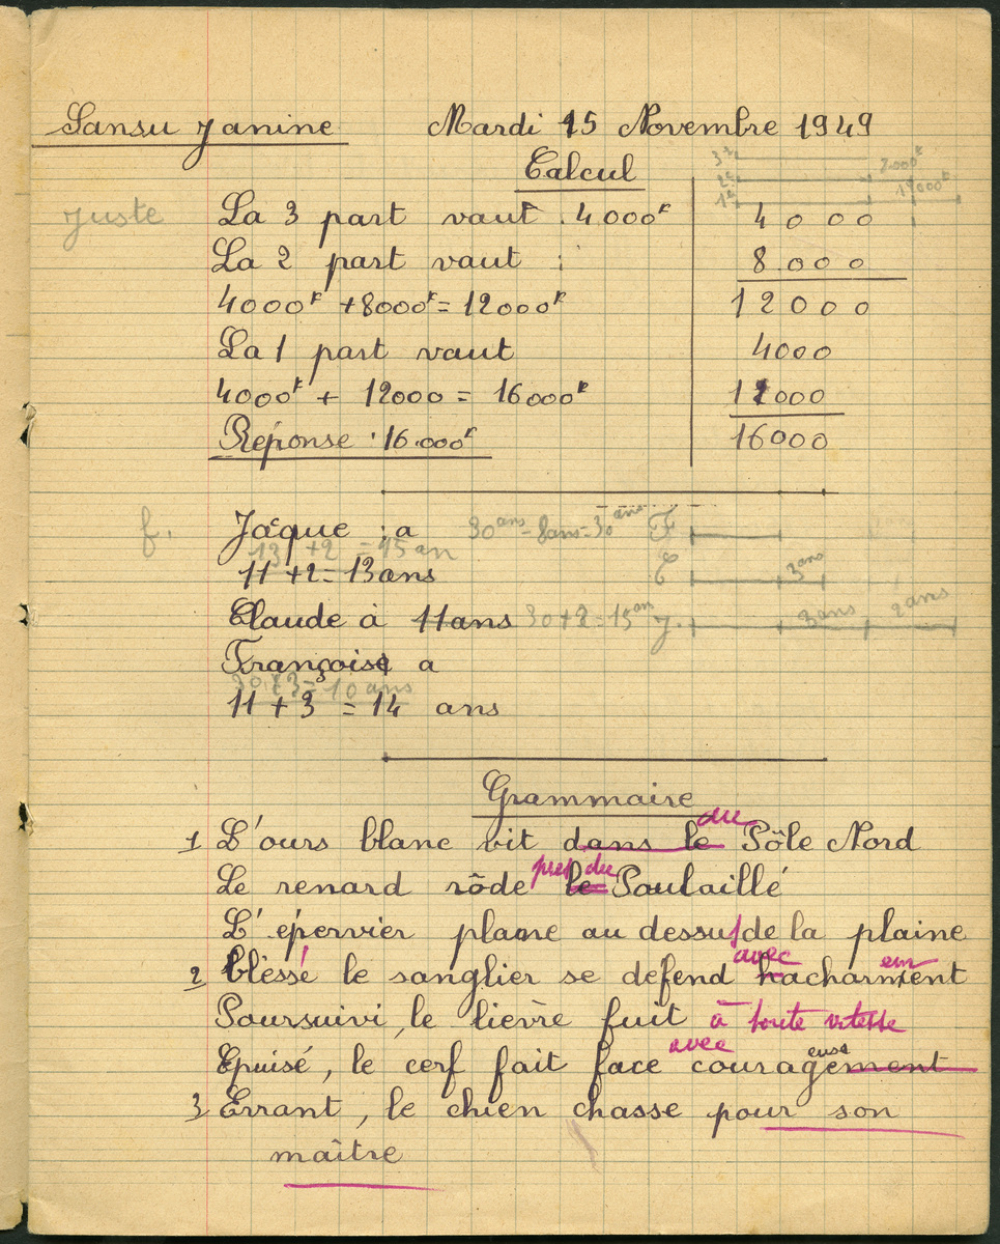 Sansu Janine Mardi 15 Novembre 1949
Calcul
3e
2e 7.000F
1e 12000F
juste La 3 part vaut 4.000F 4000
La 2 part vaut : 8.000
4000F + 8000F = 12000F 12000
La 1 part vaut 4000
4000F + 12000 = 16000F 12000
Réponse : 16.000F 16000
f. Jacque : a 30ans - 8ans = 30ans F
13 + 2 = 15 an
11 + 2 = 13 ans C 3ans
Claude à 11 ans 30 + 2 = 15an J. 3ans 2ans
Françoise a
30 : 3 = 10 ans
11 + 3 = 14 ans
Grammaire
du
1 L'ours blanc vit dans le Pôle Nord
pres du
Le renard rôde le Poulaillé
L'épervier plane au dessus de la plaine
avec em
2 blèssé le sanglier se défend hacharnent
Poursuivi, le lièvre fuit à toute vitesse
avec euse
Epuisé, le cerf fait face couragement
3 Errant, le chien chasse pour son
maître